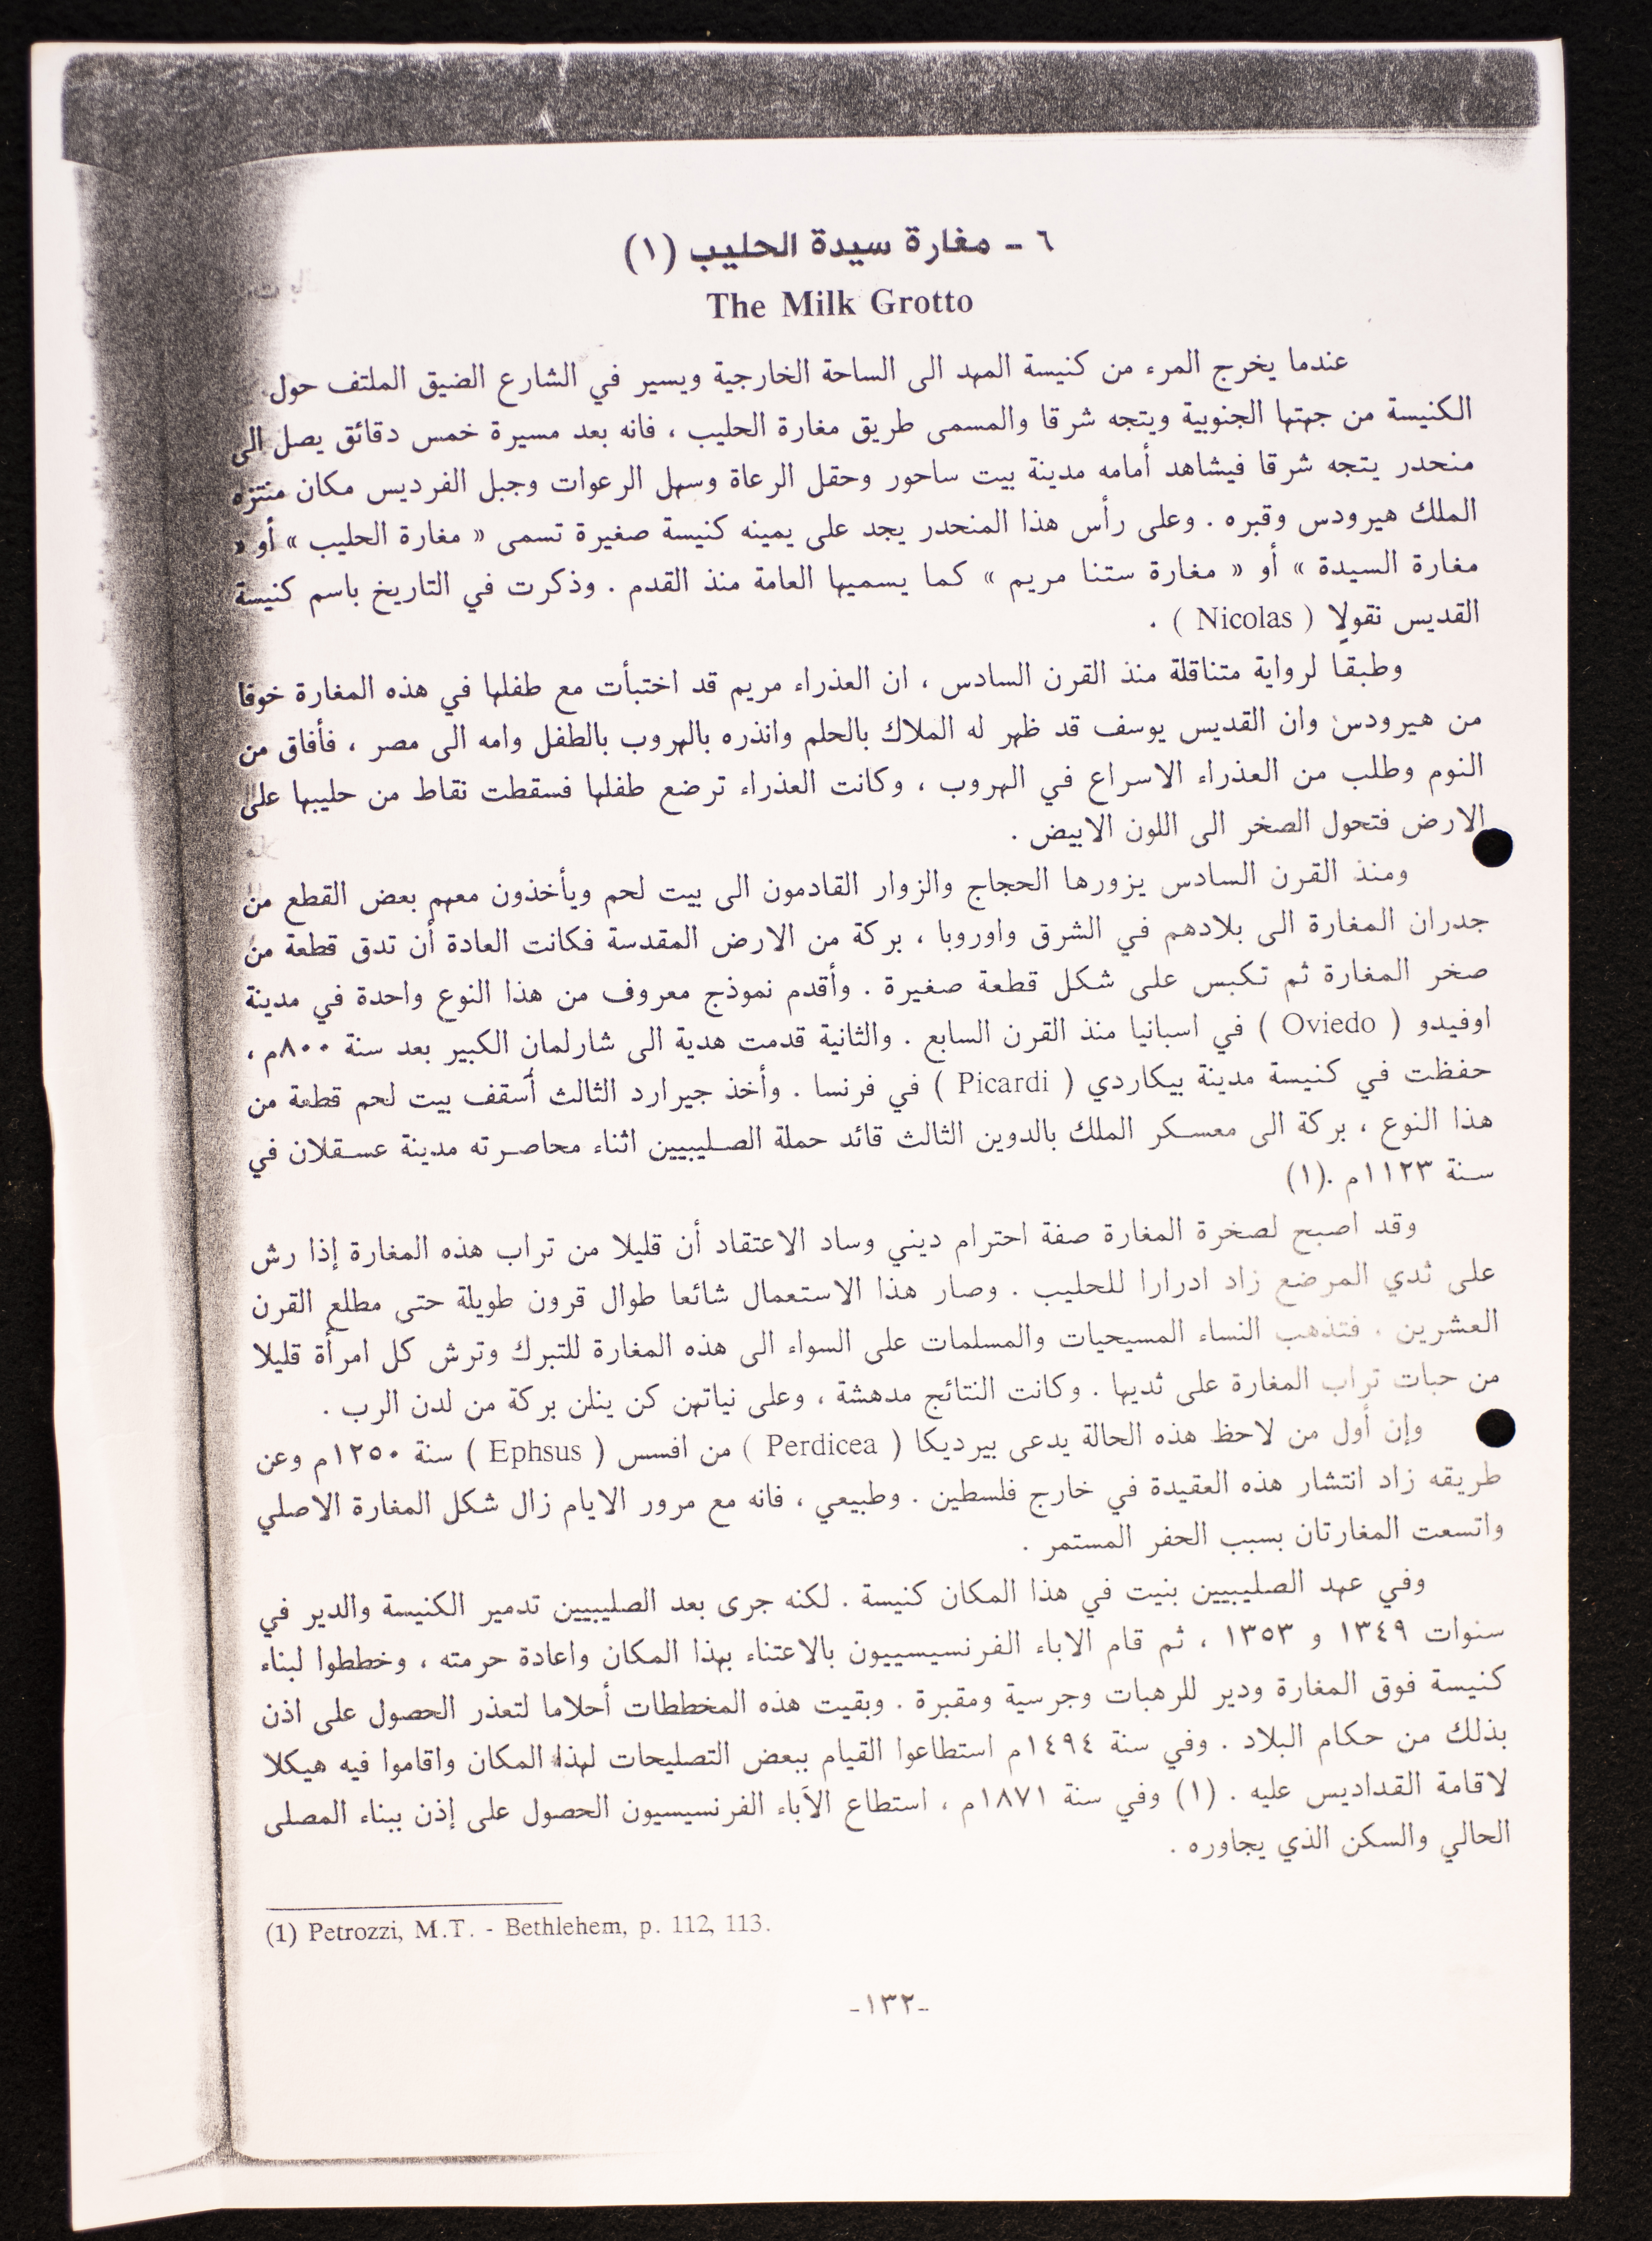 ٦ - مغارة سيدة الحليب (١)
The Milk Grotto
عندما يخرج المرء من كنيسة المهد الى الساحة الخارجية ويسير في الشارع الضيق الملتف حول
الكنيسة من جهتها الجنوبية ويتجه شرقا والمسمى طريق مغارة الحليب ، فانه بعد مسيرة خمس دقائق يصل الى
منحدر يتجه شرقا فيشاهد أمامه مدينة بيت ساحور وحقل الرعاة وسهل الرعوات وجبل الفرديس مكان منتزه
الملك هيرودس وقبره . وعلى رأس هذا المنحدر يجد على يمينه كنيسة صغيرة تسمى « مغارة الحليب » أو «
مغارة السيدة » أو « مغارة ستنا مريم » كما يسميها العامة منذ القدم . وذكرت في التاريخ باسم كنيسة
القديس نقولا ( Nicolas ) .
وطبقا لرواية متناقلة منذ القرن السادس ، ان العذراء مريم قد اختبأت مع طفلها في هذه المغارة خوفا
من هيرودس وان القديس يوسف قد ظهر له الملاك بالحلم وانذره بالهروب بالطفل وامه الى مصر ، فأفاق من
النوم وطلب من العذراء الاسراع في الهروب ، وكانت العذراء ترضع طفلها فسقطت نقاط من حليبها على
الارض فتحول الصخر الى اللون الابيض .
ومنذ القرن السادس يزورها الحجاج والزوار القادمون الى بيت لحم ويأخذون معهم بعض القطع من
جدران المغارة الى بلادهم في الشرق واوروبا ، بركة من الارض المقدسة فكانت العادة أن تدق قطعة من
صخر المغارة ثم تكبس على شكل قطعة صغيرة . وأقدم نموذج معروف من هذا النوع واحدة في مدينة
اوفيدو ( Oviedo ) في اسبانيا منذ القرن السابع . والثانية قدمت هدية الى شارلمان الكبير بعد سنة ٨٠٠م ،
حفظت في كنيسة مدينة بيكاردي ( Picardi ) في فرنسا . وأخذ جيرارد الثالث أسقف بيت لحم قطعة من
هذا النوع ، بركة الى معسكر الملك بالدوين الثالث قائد حملة الصليبيين اثناء محاصرته مدينة عسقلان في
سنة ١١٢٣م .(١)
وقد اصبح لصخرة المغارة صفة احترام ديني وساد الاعتقاد أن قليلا من تراب هذه المغارة إذا رش
على ثدي المرضع زاد ادرارا للحليب . وصار هذا الاستعمال شائعا طوال قرون طويلة حتى مطلع القرن
العشرين . فتذهب النساء المسيحيات والمسلمات على السواء الى هذه المغارة للتبرك وترش كل امرأة قليلا
من حبات تراب المغارة على ثديها . وكانت النتائج مدهشة ، وعلى نياتهن كن ينلن بركة من لدن الرب .
وإن أول من لاحظ هذه الحالة يدعى بيرديكا ( Perdicea ) من افسس ( Ephsus ) سنة ١٢٥٠م وعن
طريقه زاد انتشار هذه العقيدة في خارج فلسطين . وطبيعي ، فانه مع مرور الايام زال شكل المغارة الاصلي
واتسعت المغارتان بسبب الحفر المستمر .
وفي عهد الصليبيين بنيت في هذا المكان كنيسة . لكنه جرى بعد الصليبيين تدمير الكنيسة والدير في
سنوات ١٣٤٩ و ١٣٥٣ ، ثم قام الاباء الفرنسيسييون بالاعتناء بهذا المكان واعادة حرمته ، وخططوا لبناء
كنيسة فوق المغارة ودير للرهبات وجرسية ومقبرة . وبقيت هذه المخططات أحلاما لتعذر الحصول على اذن
بذلك من حكام البلاد . وفي سنة ١٤٩٤م استطاعوا القيام ببعض التصليحات لهذا المكان واقاموا فيه هيكلا
لاقامة القداديس عليه . (١) وفي سنة ١٨٧١م ، استطاع الآباء الفرنسيسيون الحصول على إذن ببناء المصلى
الحالي والسكن الذي يجاوره .
(1) Petrozzi, M.T. - Bethlehem, p. 112, 113.
-١٣٢-